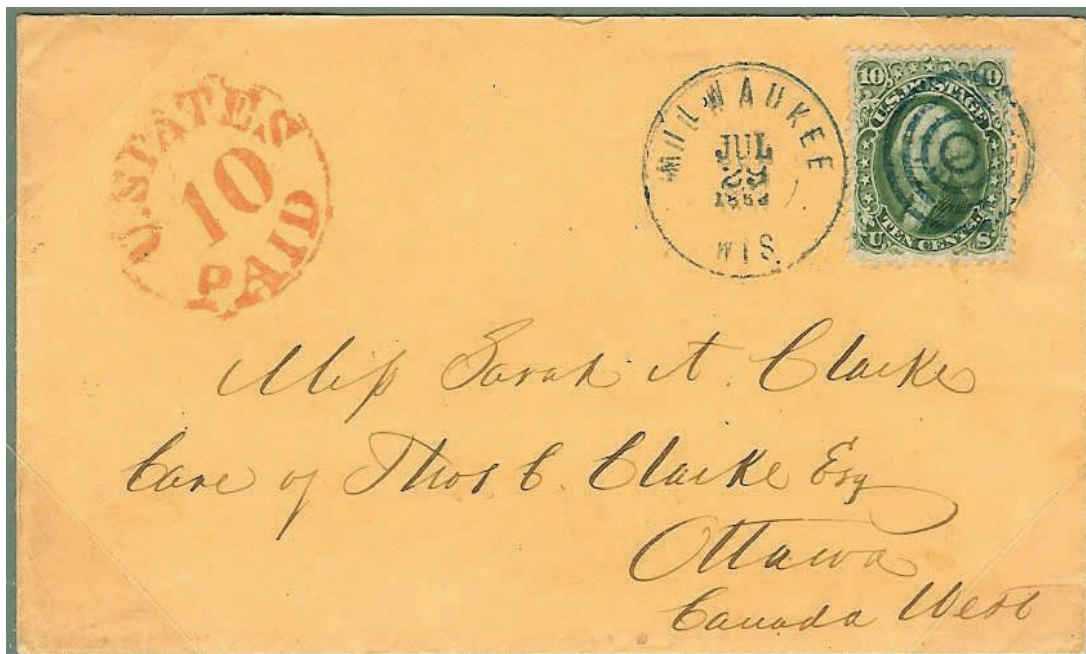 U.STATES
10
PAID
MILWAUKEE
JUL
WIS
10 10
U.S.POSTAGE
TEN CENTS
U S
Miss Sarah A. Clarke
Care of Thos C. Clarke Esq
Ottawa
Canada West